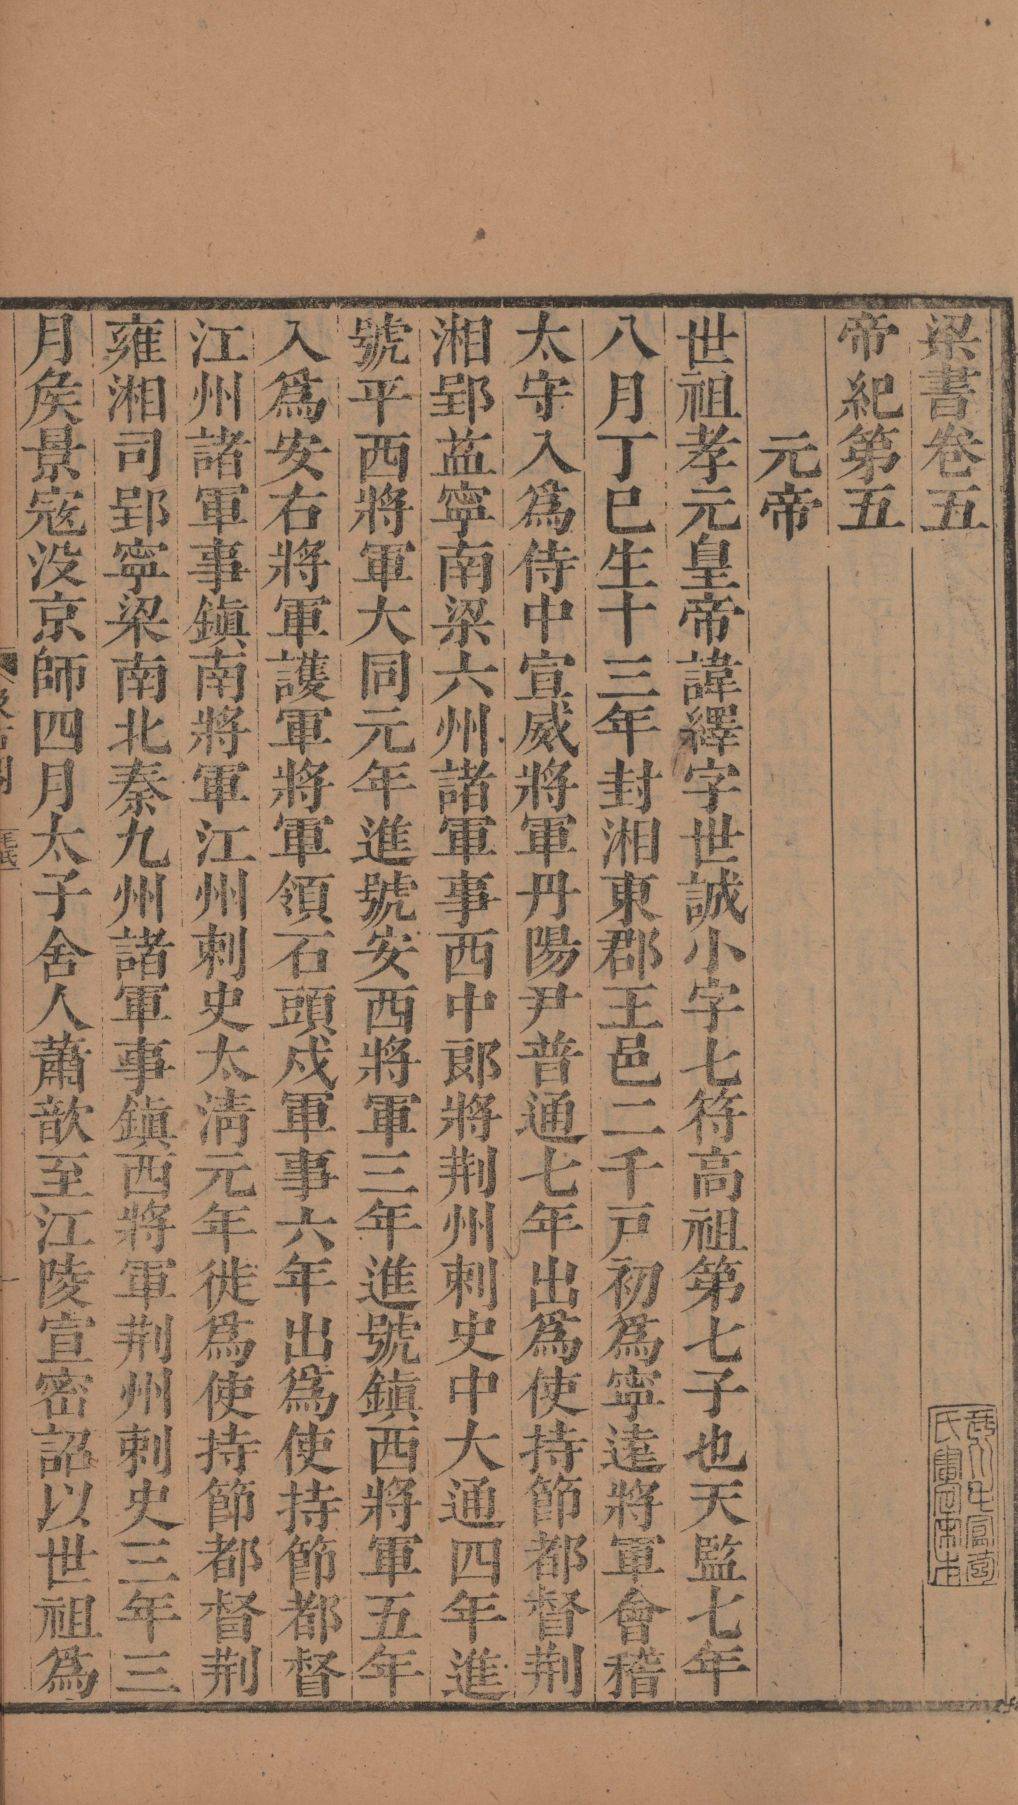 梁書卷五
帝紀第五
元帝
世祖孝元皇帝諱繹字世誠小字七符高祖第七子也天監七年
八月丁巳生十三年封湘東郡王邑二千戸初爲寧遠將軍會稽
太守入爲侍中宣威將軍丹陽尹普通七年出爲使持節都督荆
湘郢益寧南梁六州諸軍事西中郎將荆州刺史中大通四年進
號平西將軍大同元年進號安西將軍三年進號鎭西將軍五年
入爲安右將軍護軍將軍領石頭戍軍事六年出爲使持節都督
江州諸軍事鎭南將軍江州刺史太淸元年徙爲使持節都督荆
雍湘司郢寧梁南北秦九州諸軍事鎭西將軍荆州刺史三年三
月矦景寇没京師四月太子舍人蕭歆至江陵宣密詔以世祖爲